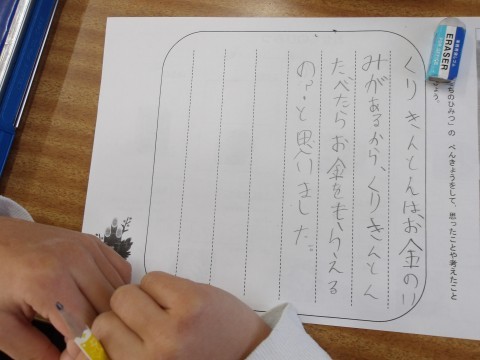 ちのひみつ」の べんきょうをして、思ったことや考えたこと
ょう。
くりきんとんは、お金のい
みがあるから、くりきんとん
たべたらお金をもらえる
の?と思いました。
ERASER